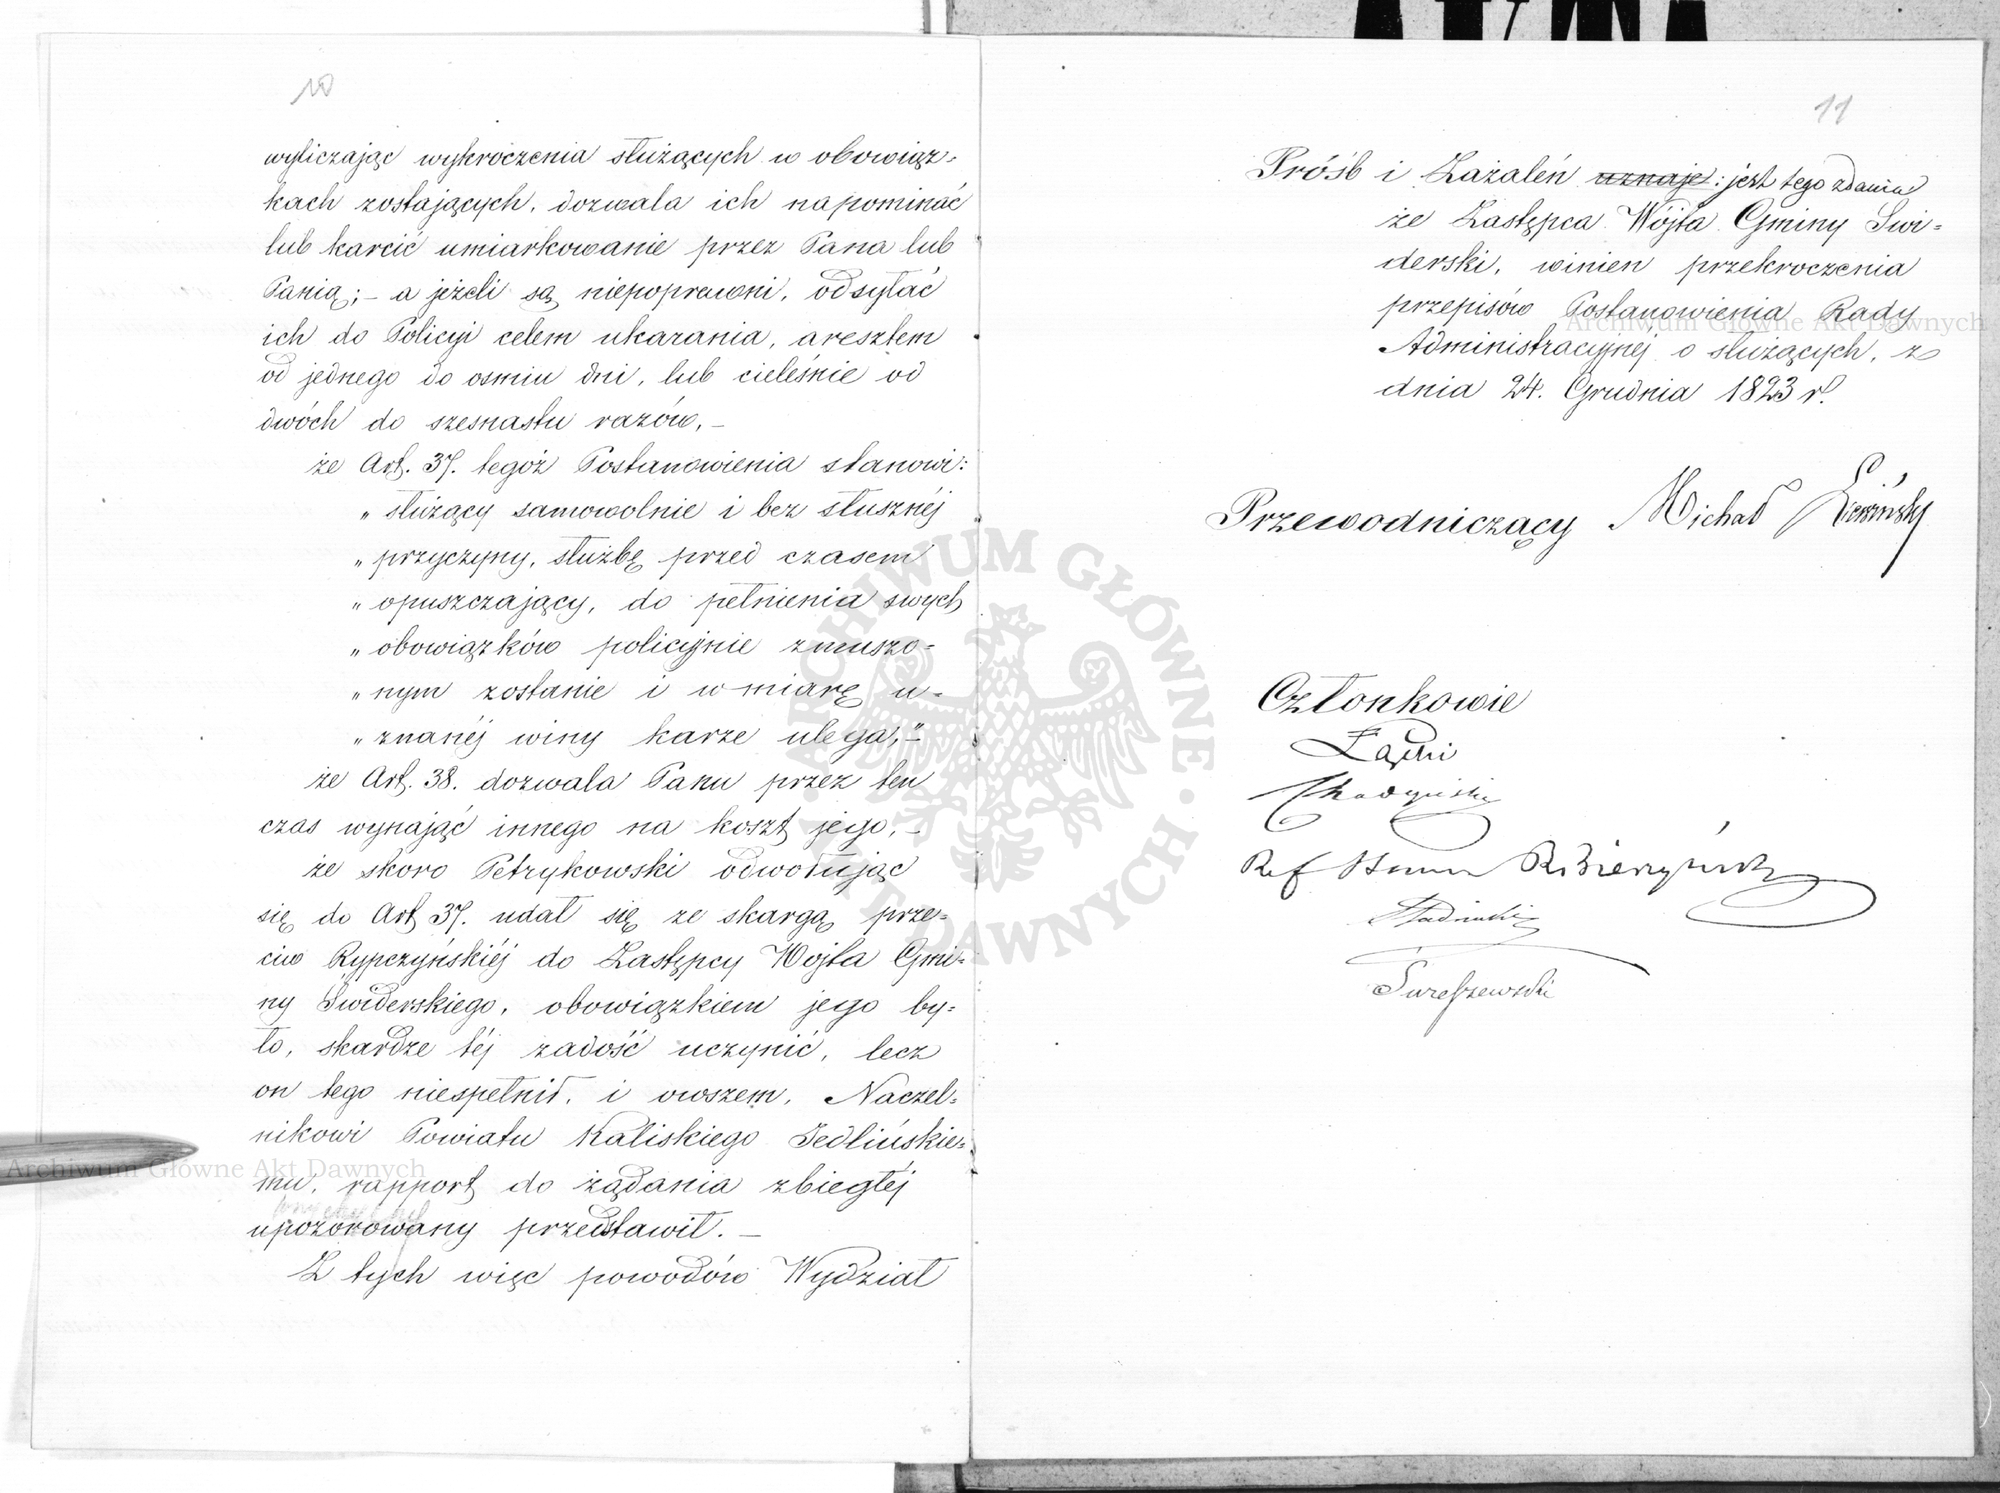 10
wyliczając wykroczenia służących w obowiąz=
kach zostających, dozwala ich napominać
lub karcić umiarkowanie przez Pana lub
Panią; – a jeżeli są niepoprawni, odsyłać
ich do Policyi celem ukarania, aresztem
od jednego do osmiu dni, lub cieleśnie od
dwóch do szesnastu razów, –
że Art. 37. tegoż Postanowienia stanowi:
„ służący samowolnie i bez słusznéj
„ przyczyny, służbę przed czasem
„ opuszczający, do pełnienia swych
„ obowiązków policyjnie zmuszo=
„ nym zostanie i w miarę u=
„ znanéj winy karze ulega,” –
że Art. 38. dozwala Panu przez ten
czas wynająć innego na koszt jego, –
że skoro Petrykowski odwołując
się do Art 37. udał się ze skargą prze=
ciw Rypczyńskiéj do Zastępcy Wójta Gmi=
ny Świderskiego, obowiązkiem jego by=
ło, skardze téj zadość uczynić, lecz
on tego niespełnił, i owszem, Naczel=
nikowi Powiatu Kaliskiego Jedlińskie=
mu, rapport do żądania zbiegłéj
upozorowany przedstawił. –
Z tych więc powodów Wydział
11
Próśb i Zażaleń uznaje: jest tego zdania
że Zastępca Wójta Gminy Świ=
derski, winien przekroczenia
przepisów Postanowienia Rady
Administracyjnéj o służących, z
dnia 24. Grudnia 1823 r.
Przewodniczący Michał
Członkowie
Archiwum Główne Akt Dawnych
Archiwum Główne Akt Dawnych
ARCHIWUM GŁÓWNE AKT DAWNYCH